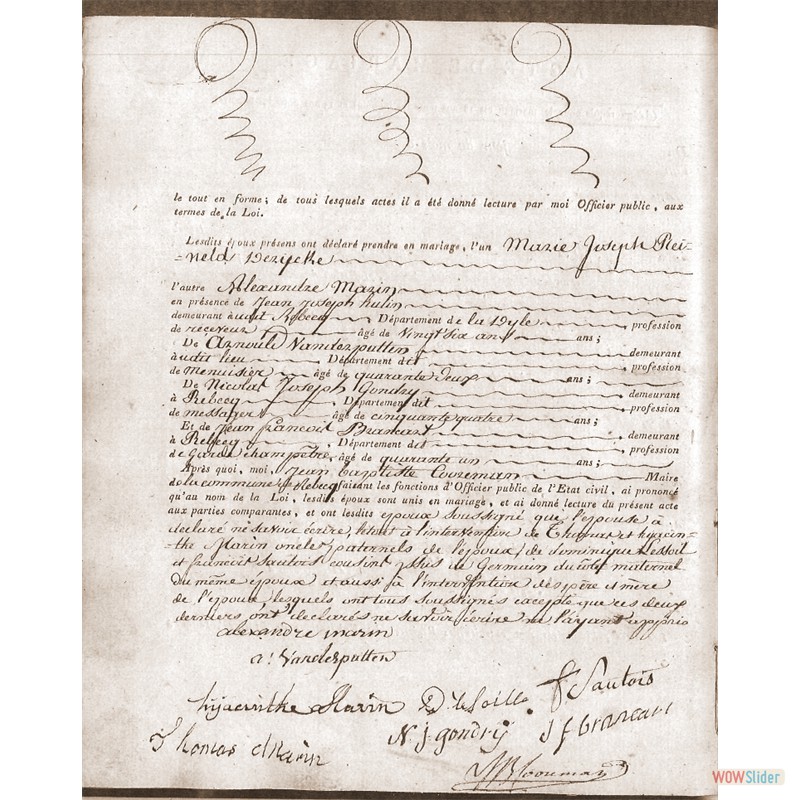 le tout en forme ; de tous lesquels actes il a été donné lecture par moi Officier public, aux
termes de la Loi.
Lesdits époux présens ont déclaré prendre en mariage, l'un Marie Joseph Rei-
-nelde Derijcke
l'autre Alexandre Marin
en présence de Jean Joseph hulin
demeurant audit Rebecq Département de la Dyle profession
de receveur âgé de Vingt Six ans ans ;
De Arnould Vanderputten demeurant
à audit lieu Département dit profession
de menuisier âgé de quarante deux ans ;
De Nicolas Joseph Gondry demeurant
à Rebecq Département dit profession
de messager âgé de cinquante quatre ans ;
Et de Jean francois Brancart demeurant
à Rebecq Département dit profession
de Garde champêtre âgé de quarante un ans ;
Après quoi, moi, Jean Baptiste Cooreman Maire
de la commune de Rebecq faisant les fonctions d'Officier public de l'Etat civil, ai prononcé
qu'au nom de la Loi, lesdits époux sont unis en mariage, et ai donné lecture du présent acte
aux parties comparantes, et ont lesdits époux soussigné que l'épouse à
declaré ne savoir écrire, le tout à l'intervention de Thomas et hyacin-
the Marin oncles paternels de l'epoux, de dominique Lessoil
et francois Sautois cousins issus de Germain du coté maternel
du même epoux et aussi à l'intervention des père et mère
de l'epoux, lesquels ont tous soussignés excepté que ces deux
derniers ont déclarés ne savoir écrire ne l'ayant appris
alexandre marin
a: Vanderputten
hyacinthe Marin D. leSoille f Sautois
Thomas Marin N j gondry J f Brancart
JB Cooreman
WOWSlider